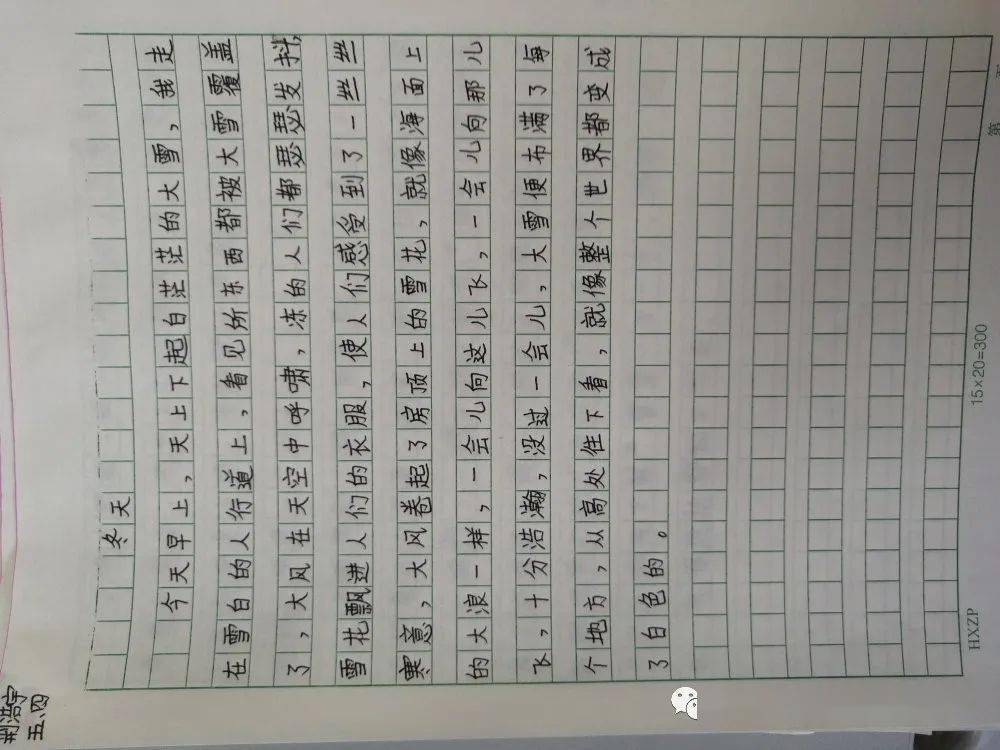 荆浩宇
五、四
冬天
今天早上，天上下起白茫茫的大雪，我走
在雪白的人行道上，看见所东西都被大雪覆盖
了，大风在天空中呼啸，冻的人们都瑟瑟发抖，
雪花飘进人们的衣服，使人们感受到了一丝丝
寒意，大风卷起了房顶上的雪花，就像海面上
的大浪一样，一会儿向这儿飞，一会儿向那儿
飞，十分浩瀚，没过一会儿，大雪便布满了每
个地方，从高处住下看，就像整个世界都变成
了白色的。
HXZP 15×20=300 第